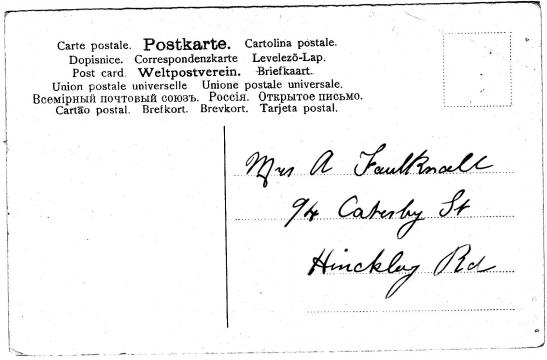 Carte postale. Postkarte. Cartolina postale.
Dopisnice. Correspondenzkarte Levelező-Lap.
Post card. Weltpostverein. Briefkaart.
Union postale universelle Unione postale universale.
Всемірный почтовый союзъ. Россія. Открытое письмо.
Cartão postal. Brefkort. Brevkort. Tarjeta postal.
Mrs A Faulknall
94 Catesby St
Hinckley Rd